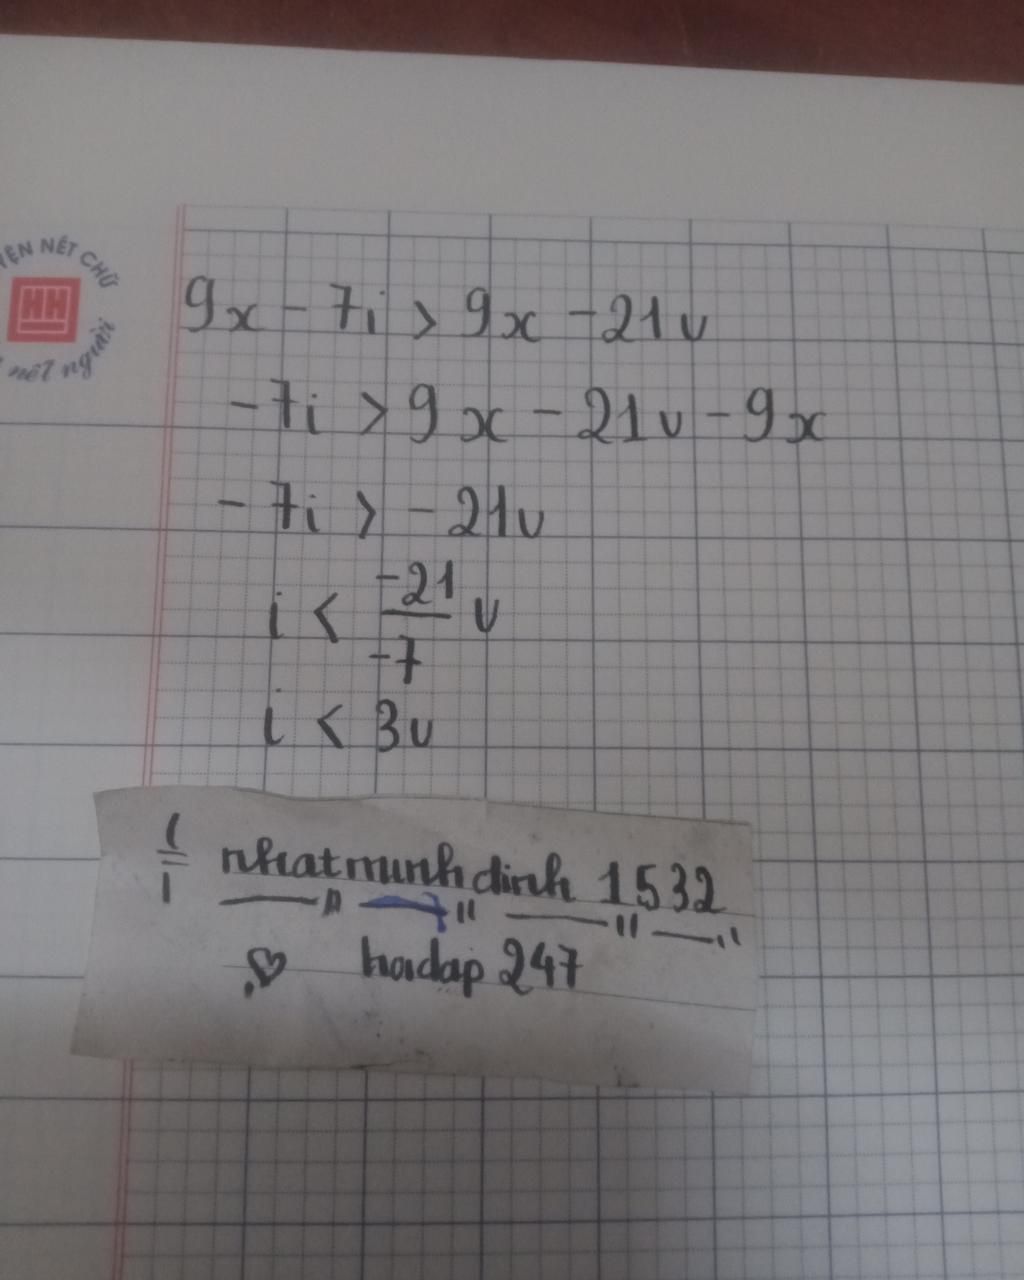 YỆN NÉT CHỮ
HH
nết người
9x - 7i > 9x - 21u
-7i > 9x - 21u - 9x
-7i > -21u
i < -21/-7 u
i < 3u
nhatminhdinh 1532
hoidap 247